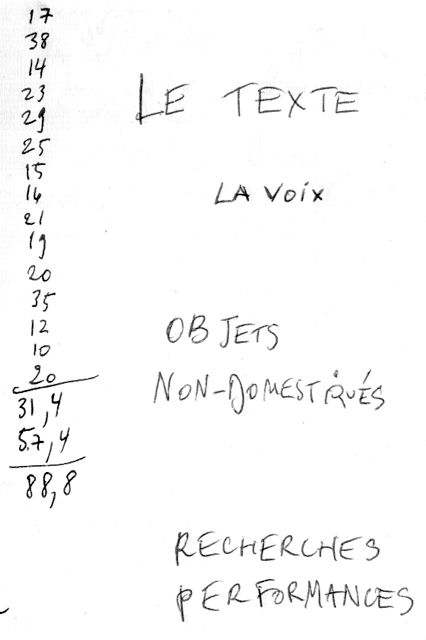 17
38
14
23
29
25
15
16
21
19
20
35
12
10
20
31,4
57,4
88,8
LE TEXTE
LA VOIX
OBJETS
NON-DOMESTIQUÉS
RECHERCHES
PERFORMANCES